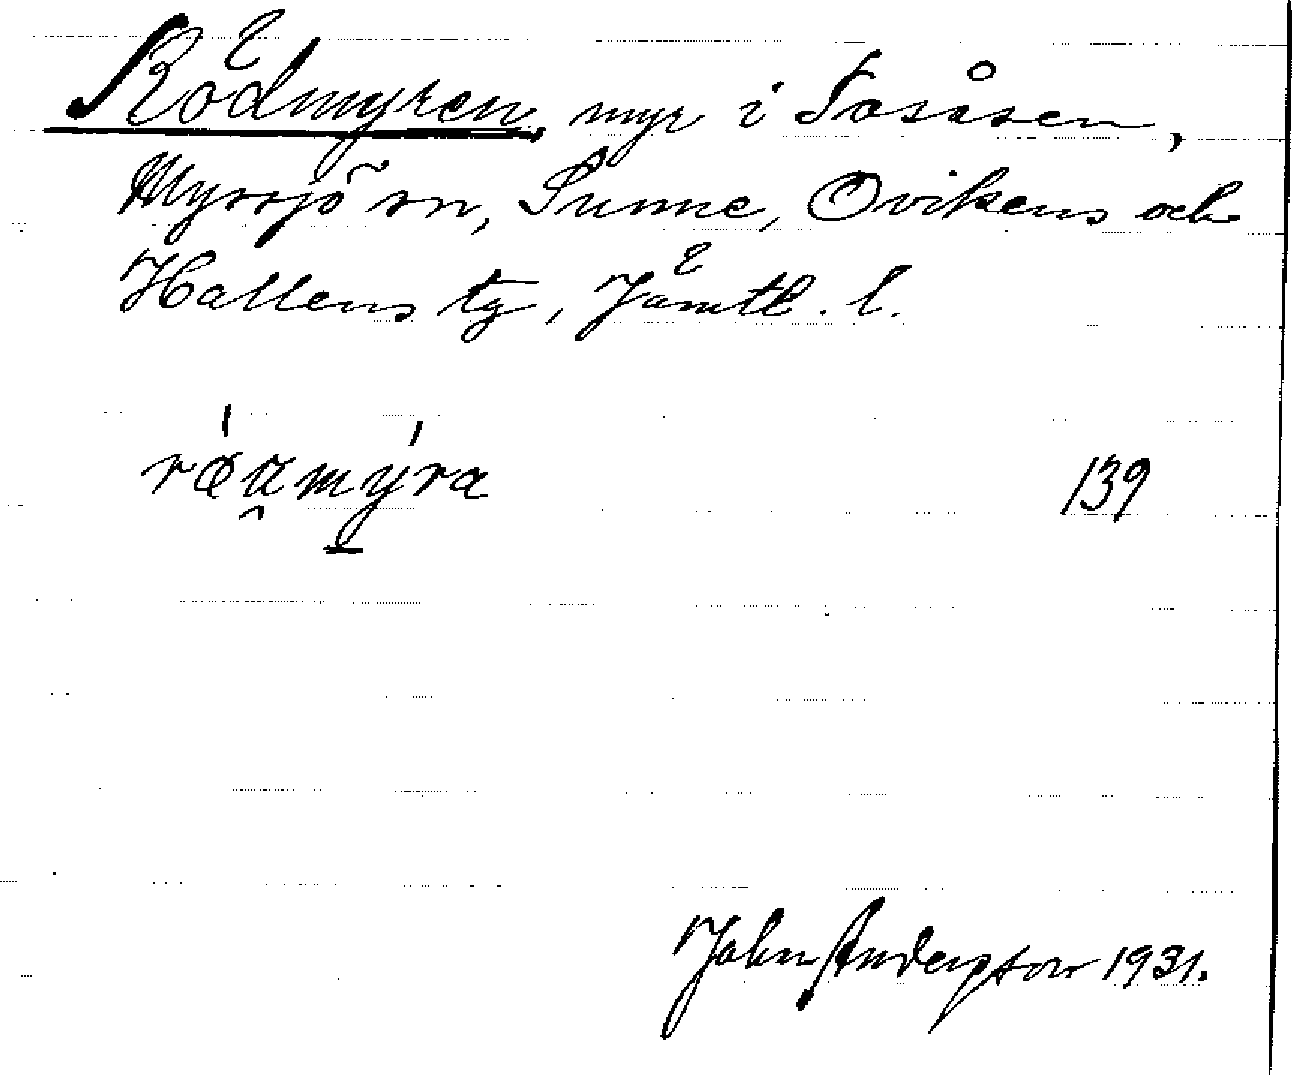 Rödmyren, myr i Fåsåsen,
Myrsjö sn, Sunne, Ovikens och
Hallens tg, Jämtl. l.
rǿnmýra 139
John Andersson 1931.